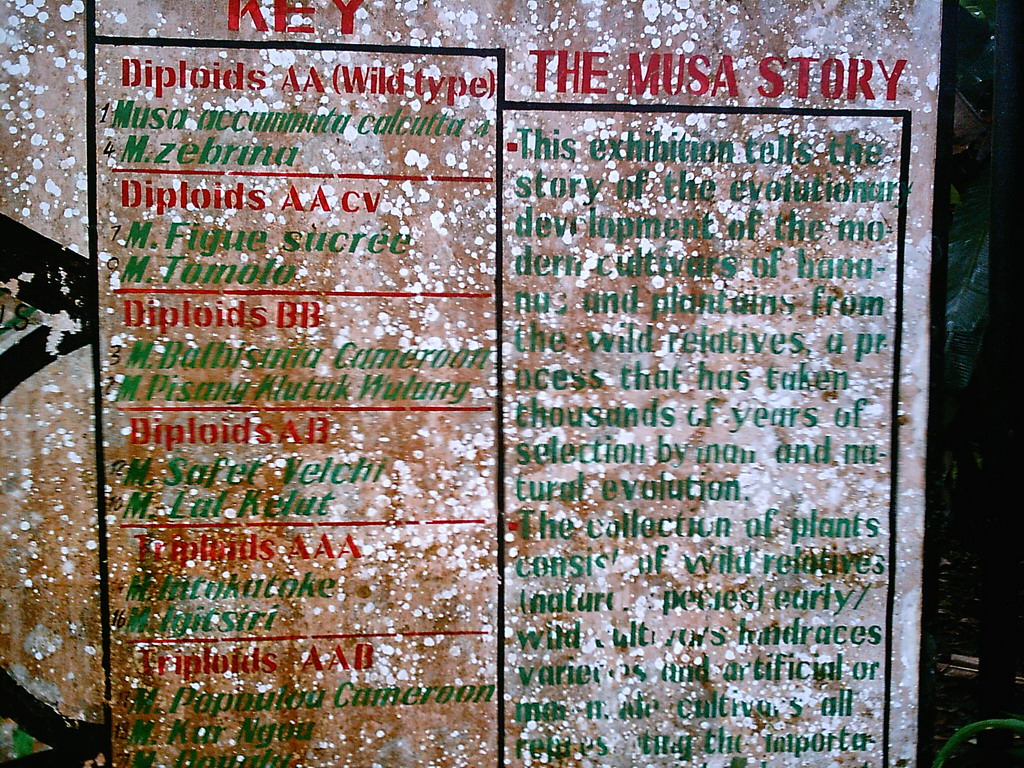 KEY
Diploids AA (Wild type)
1 Musa accummata calcutta 4
4 M. zebrina
Diploids AA cv
7 M. Figue sucrée
M. Tomolo
Diploids BB
3 M. Balbisinia Cameroon
M. Pisang Klutuk Wulung
Diploids AB
M. Safet Velchi
10 M. Lal Kelut
Triploids AAA
M. Intokatoke
16 M. Igitsiri
Triploids AAB
M. Popoulou Cameroon
M. Kar Ngou
THE MUSA STORY
This exhibition tells the
story of the evolutionary
development of the mo-
dern cultivars of bana-
nas and plantains from
the wild relatives, a pr
ocess that has taken
thousands of years of
selection by man and na-
tural evolution.
The collection of plants
consist of wild relatives
(natural species) early/
wild cultivars landraces
varieties and artificial or
man made cultivars all
representing the importa-